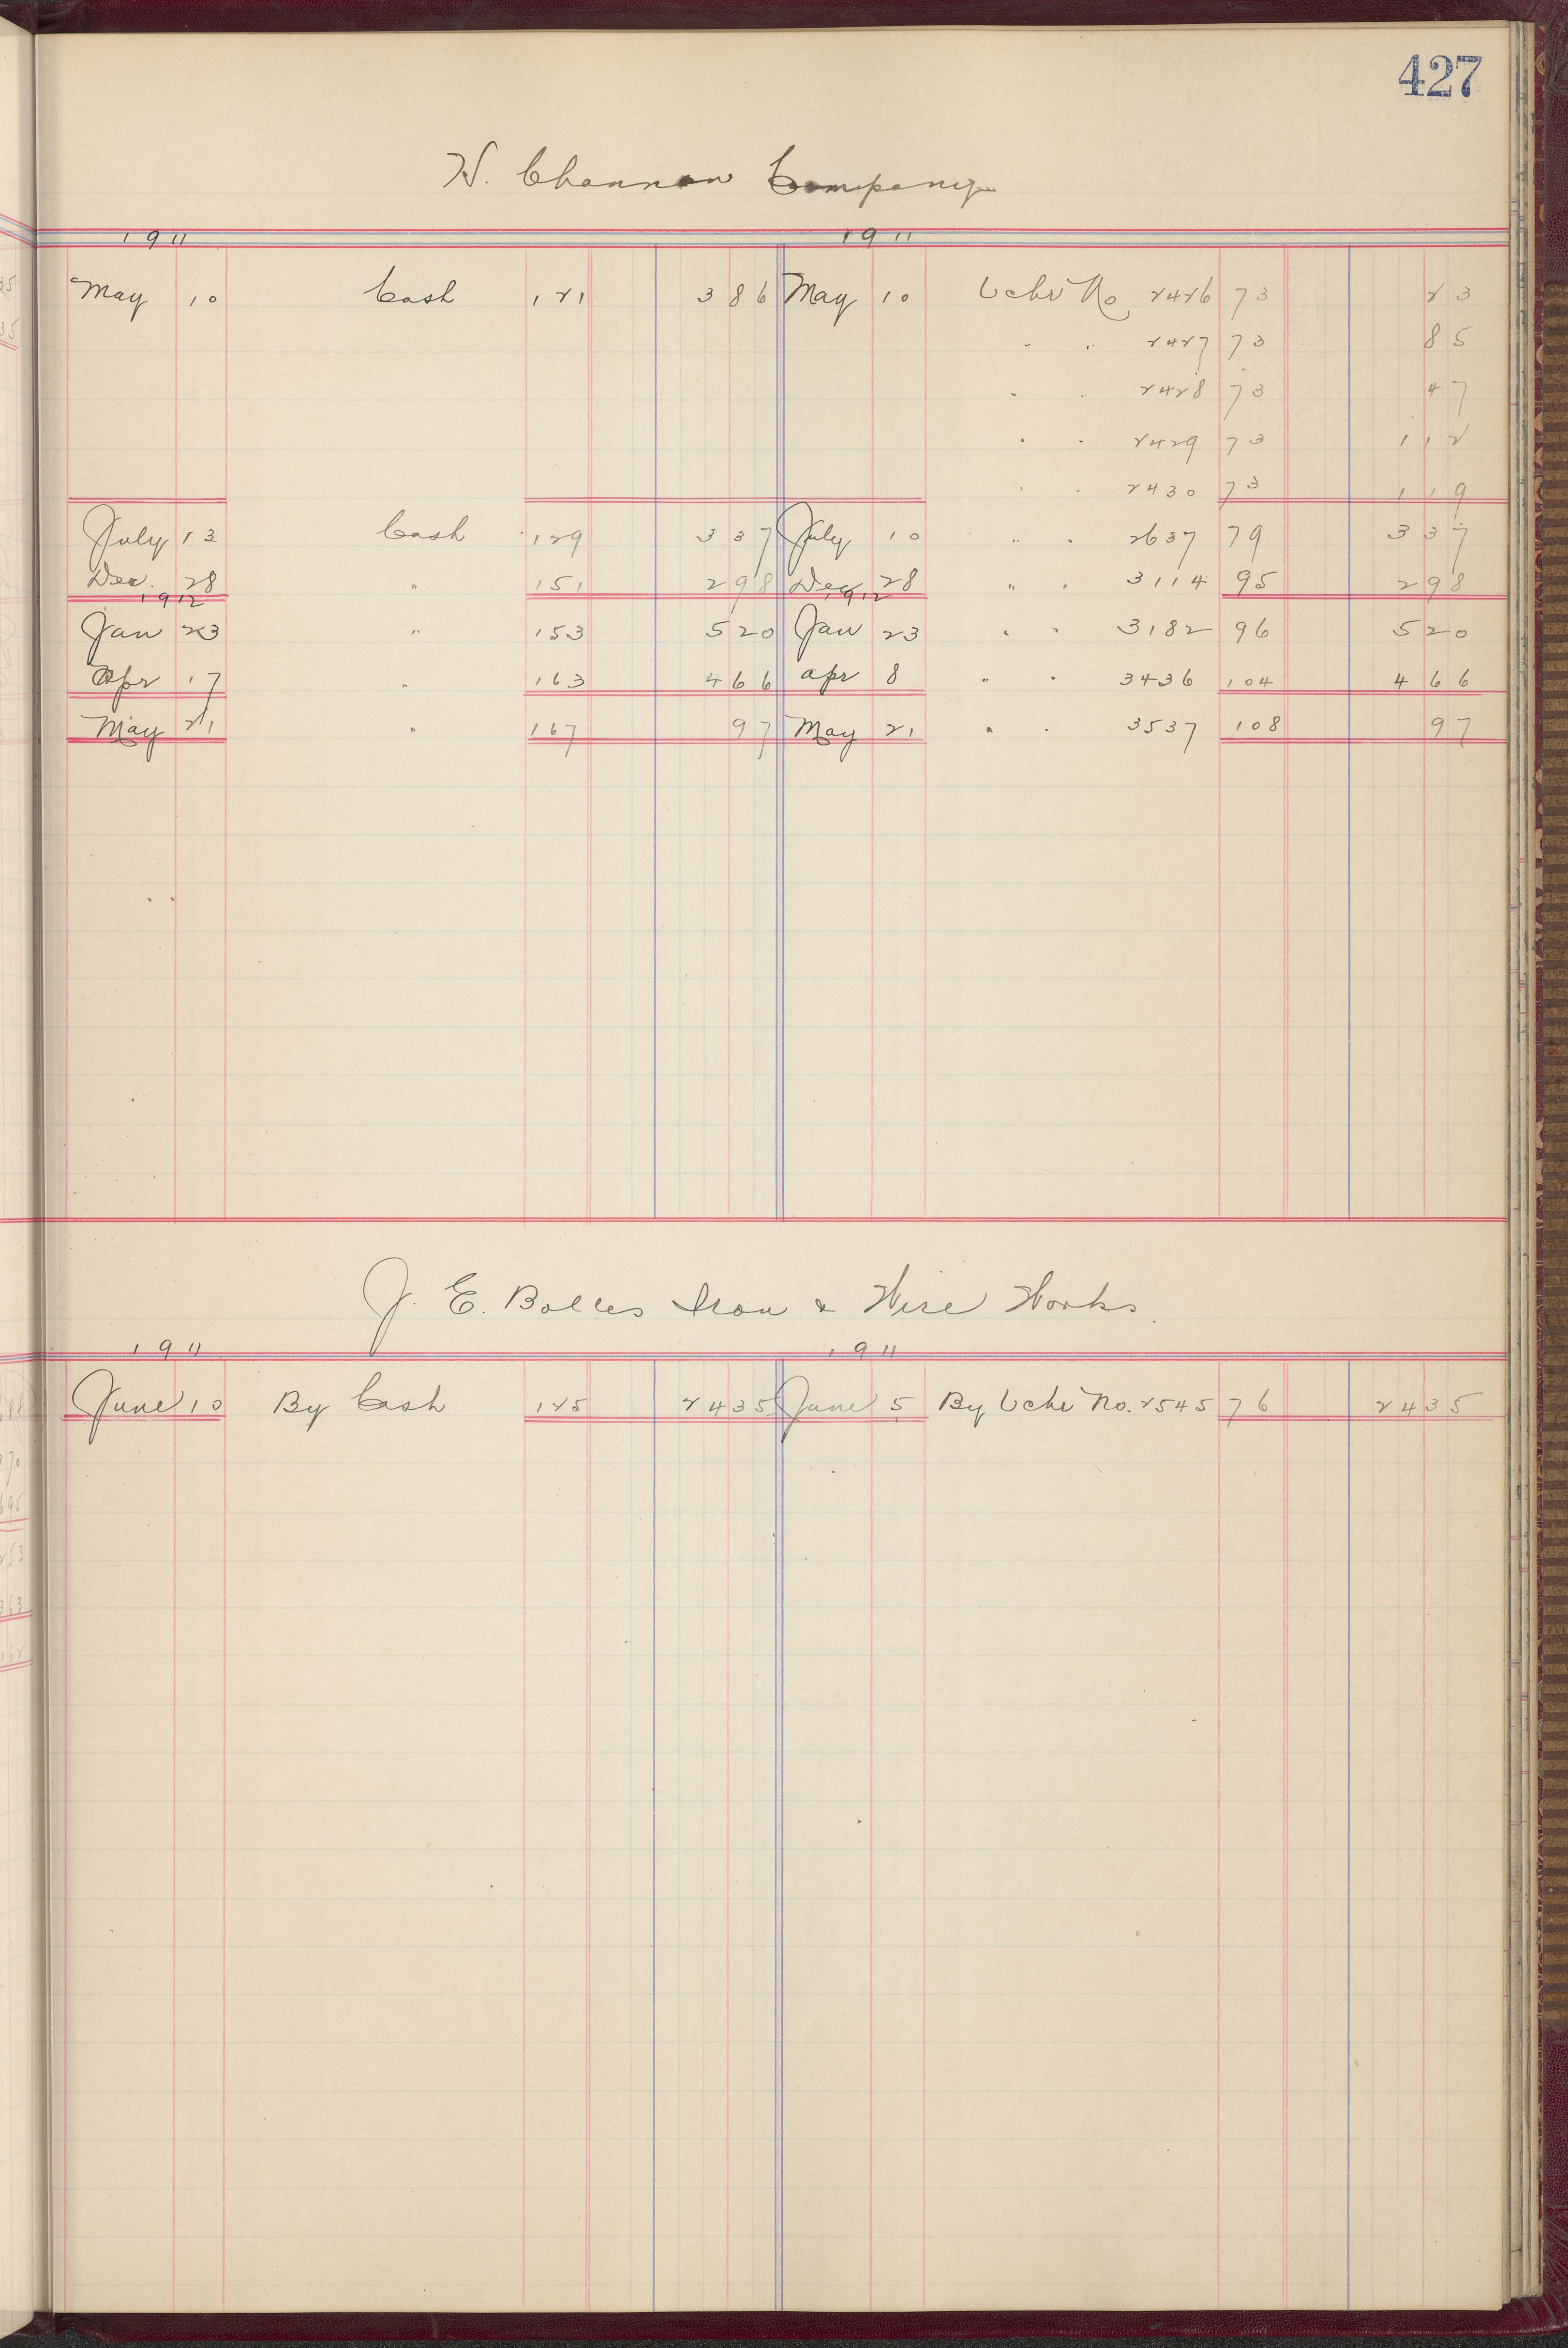 427
H. Channon Company
1911 1911
May 10 Cash 121 386 May 10 Vchr No 2426 73 23
" " 2427 73 85
" " 2428 73 47
" " 2429 73 112
" " 2430 73 119
July 13 Cash 129 337 July 10 " " 2637 79 337
Dec. 28 " 151 298 Dec 28 " " 3114 95 298
1912 1912
Jan 23 " 153 520 Jan 23 " " 3182 96 520
Apr 17 " 163 466 Apr 8 " " 3436 104 466
May 21 " 167 97 May 21 " " 3537 108 97
J. E. Bolles Iron & Wire Works.
1911 1911
June 10 By Cash 125 2435 June 5 By Vchr No. 2545 76 2435